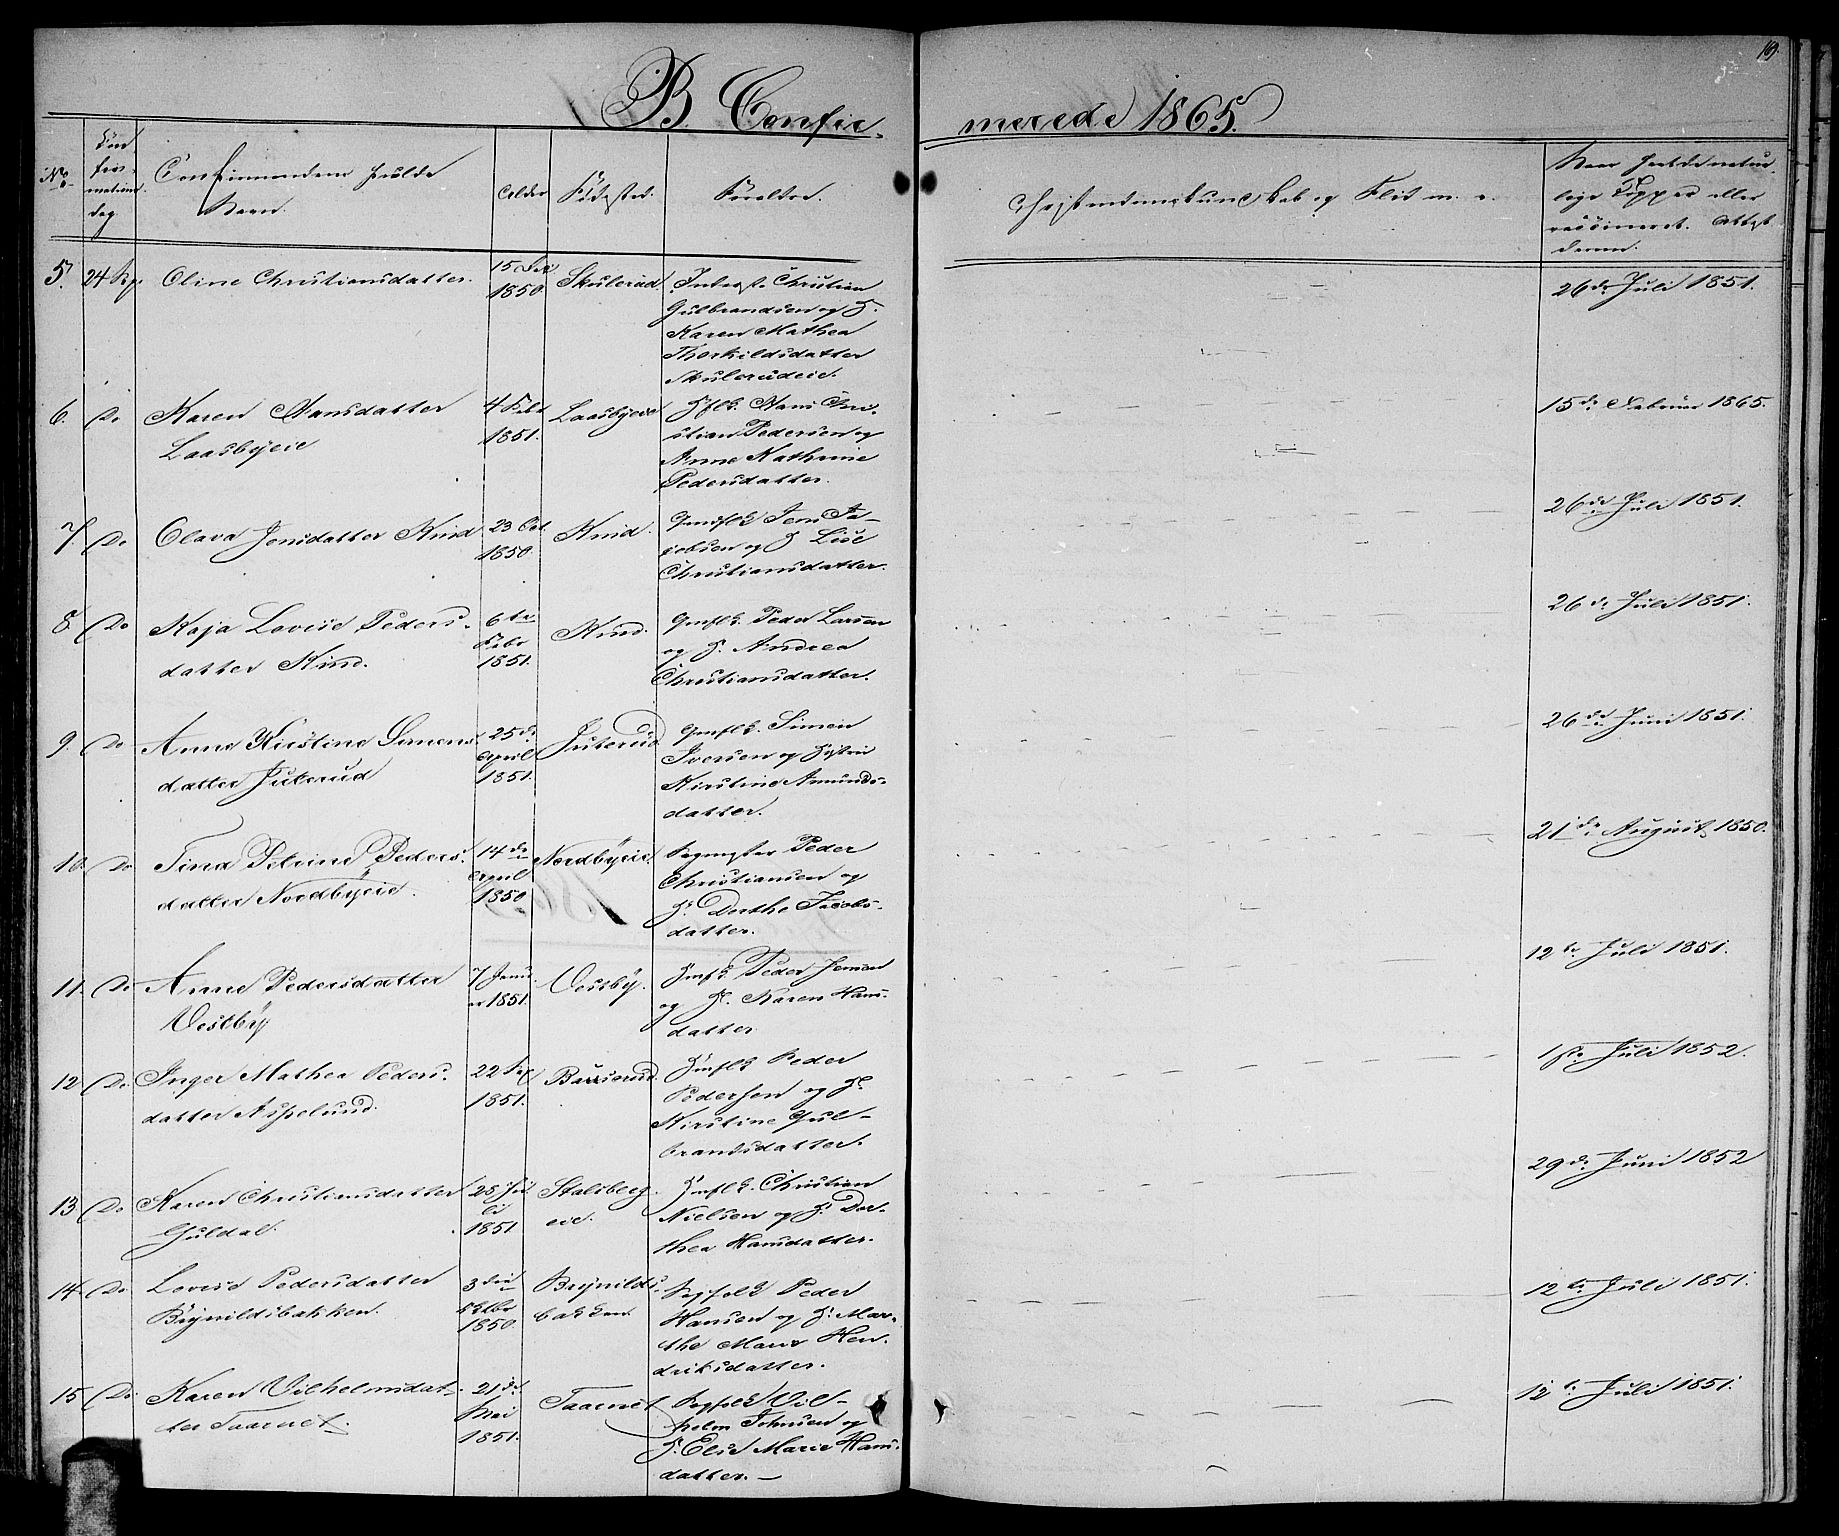 B. Confir-
merede 1865.
No
Confirmandens fulde
Navn.
Alder
Fødested.
Forældre.
Christendomskundskab og Flid m. v.
Naar havt de natur-
lige Kopper eller
vaccineret. Attest
derom.
5. 24 Sep. Oline Christiansdatter. 15 Dec. 1850. Skulerud.
Christian
Gulbrandsen og H.
Karen Mathea
Thorkildsdatter
Skulerudeie.
26de Juli 1851.
6. Do Karen Hansdatter
Laasbyeie
4 Febr 1851. Laasbyeie
Hans Chri-
stian Pedersen og
Anne Kathrine
Pedersdatter.
15de Februar 1865.
7. Do Olava Jensdatter Kind 23 Oct. 1850. Kind.
Gmflk. Jens Ja-
cobsen og H. Lise
Christiansdatter.
26de Juli 1851.
8 Do Kaja Lovise Peders-
datter Kind.
6te Febr 1851. Kind.
Gmflk. Peder Larsen
og H. Andrea
Christiansdatter.
26de Juli 1851.
9. Do Anne Kirstine Simens-
datter Juterud
25de April 1851. Juterud
Gmflk. Simen
Iversen og Hustru
Kirstine Amunds-
datter.
26de Juni 1851.
10. Do Tina Petrine Peders-
datter Nordbyeie.
14de April 1850 Nordbyeie.
Peder
Christiansen og
H. Dorthe Jacobs-
datter.
21de August 1850.
11. Do Anne Pedersdatter
Vestby
7 Janu-
ar 1851. Vestby.
Peder Jensen
og H. Karen Hans-
datter
12te Juli 1851.
12 Do. Inger Mathea Peders-
datter Aspelund.
22 Sep 1851. Basserud.
Peder
Pedersen og H.
Kirstine Gul-
brandsdatter.
1ste Juli 1852.
13 Do Karen Christiansdatter
Guldal.
28 Ju-
li 1851 Stalsberg-
eie.
Christian
Nielsen og H. Dor-
thea Hansdatter.
29de Juni 1852
14. Do Lovise Pedersdatter
Brynildsbakken.
3die 1850. Brynilds-
bakken
Peder
Hansen og H. Mar-
the Marie Hen-
driksdatter.
12te Juli 1851.
15 Do Karen Vilhelmsdat-
ter Taarnet.
21de Mai 1851. Taarnet
Vil-
helm Johnsen og
H. Elise Marie Hans-
datter.
12te Juli 1851.